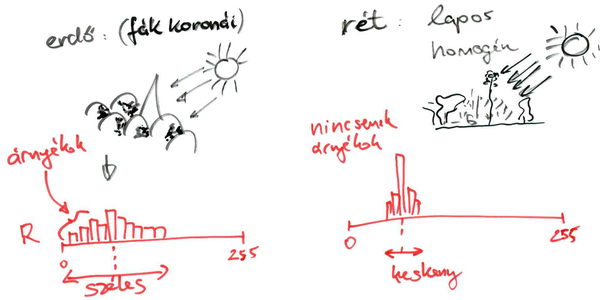 erdő: (fák koronái)
árnyékok
R
0
255
széles
rét: lapos
homogén
nincsenek
árnyékok
0
255
keskeny